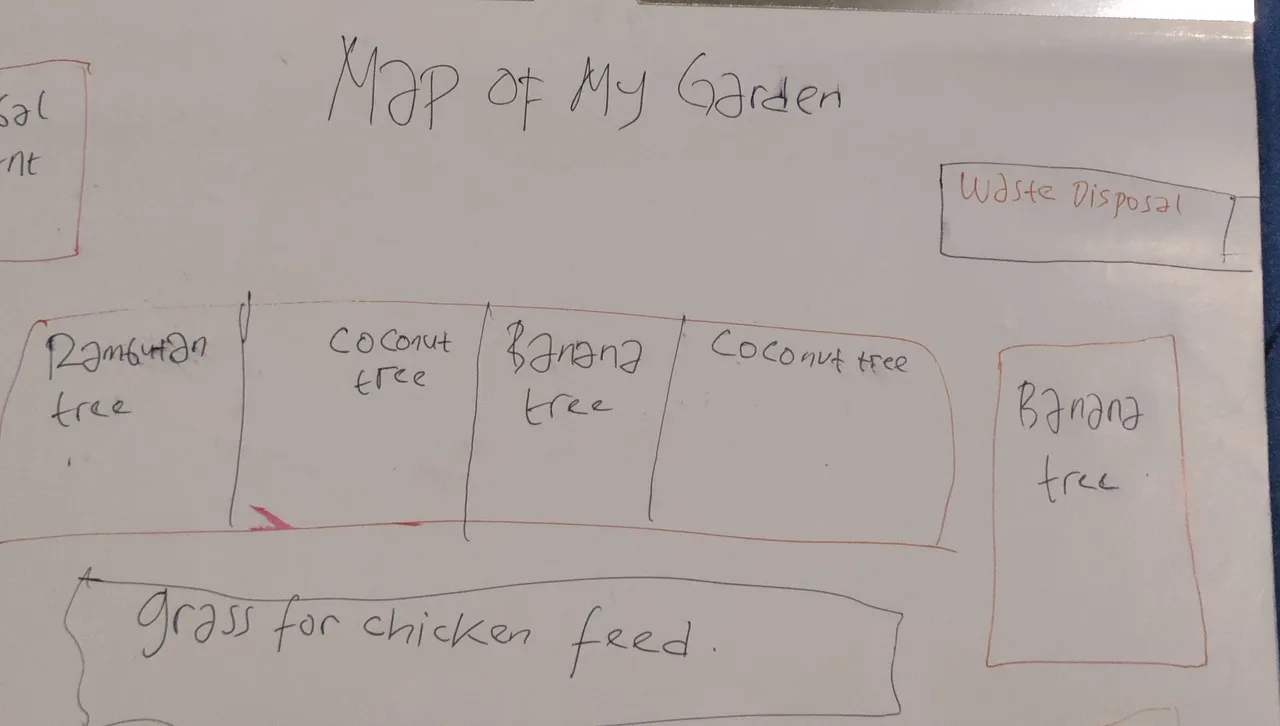 Map of My Garden
sal
nt
Waste Disposal
Rambutan
tree
coconut
tree
Banana
tree
Coconut tree
Banana
tree
grass for chicken feed.